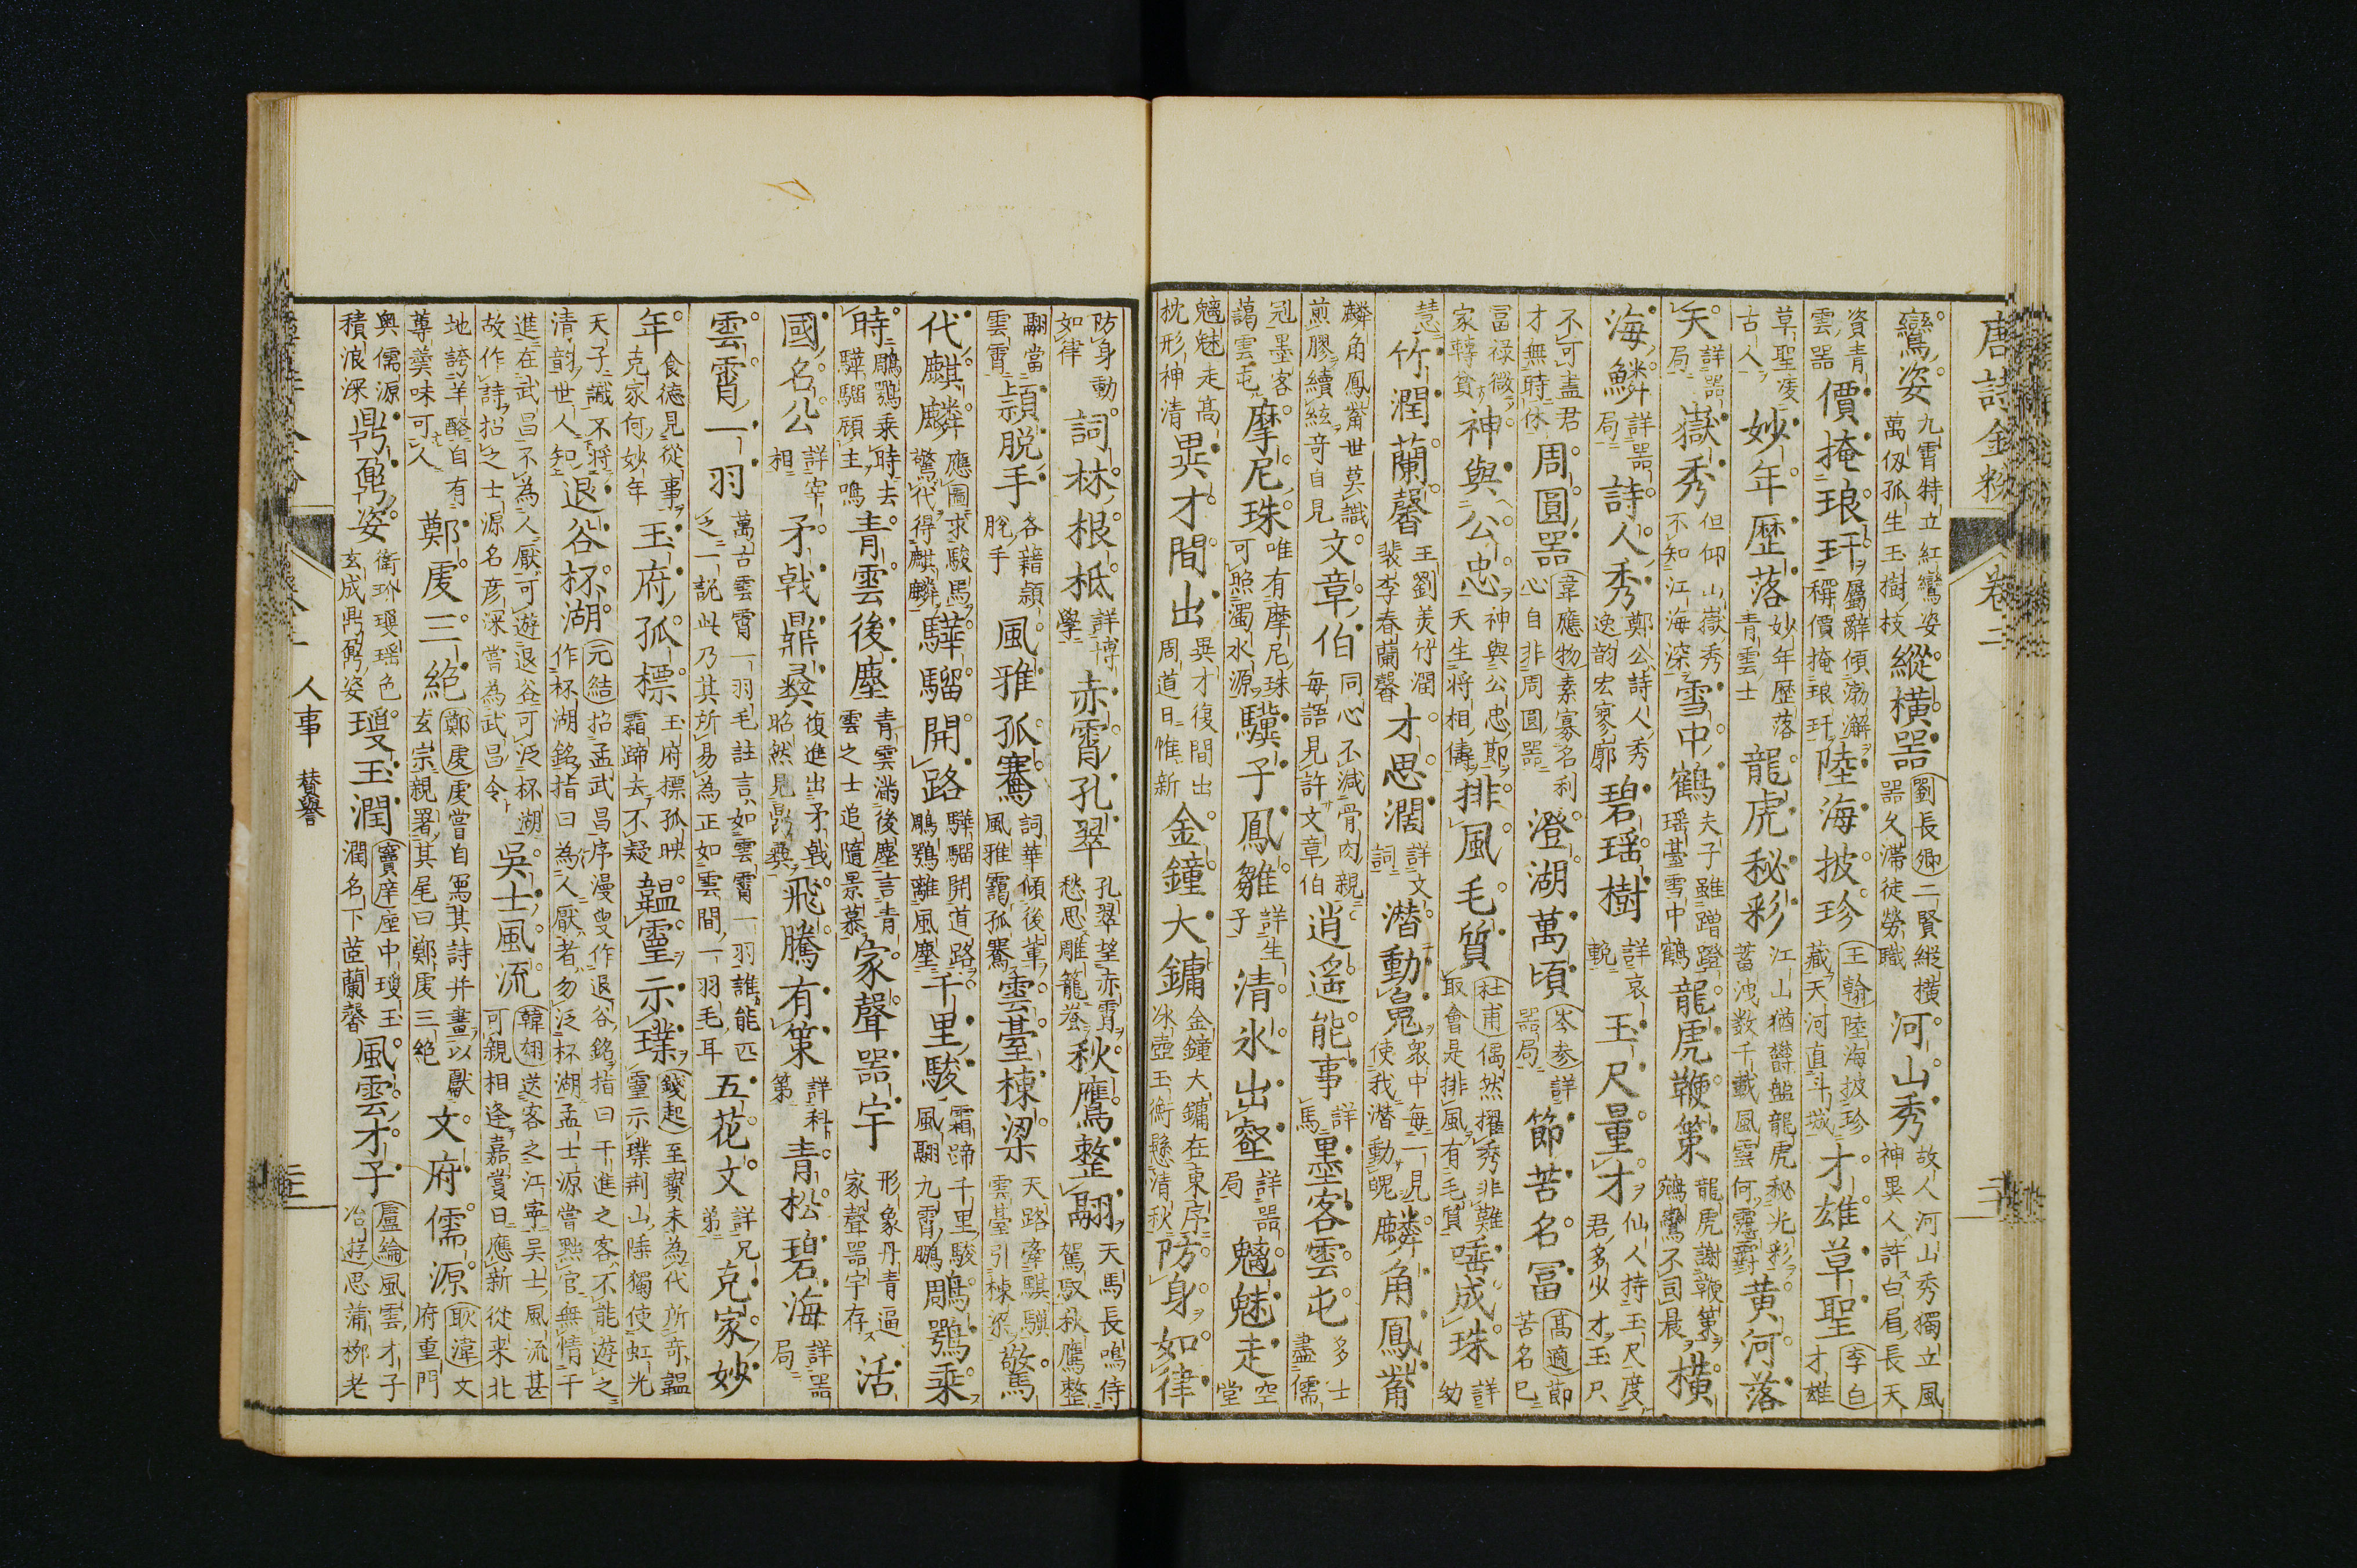 唐詩金粉 卷二
鸞姿 九霄特立紅鸞姿 萬仭孤生玉樹枝 縱橫器 劉長卿 二賢縱橫器 久滯徒勞職 河山秀 故人河山秀 獨立風神異 人許白眉長 天
資青雲器 價掩琅玕 屬辭傾渤澥 稱價掩琅玕 陸海披珍 王翰 陸海披珍藏 天河直斗城 才雄草聖 李白 才雄
草聖凌古人 妙年歷落 妙年歷落青雲士 龍虎秘彩 江山猶鬱盤 龍虎秘光彩 蓄洩数千載 風雲何霮䨴 黄河落
天 詳器局 嶽秀 但仰山嶽秀 不知江海深 雪中鶴 夫子雖蹭蹬 瑶臺雪中鶴 龍虎鞭策 龍虎謝鞭策 鵷鸞不司晨 橫
海鱗 詳器局 詩人秀 鄭公詩人秀 逸韵宏寥廓 碧瑶樹 詳哀輓 玉尺量才 仙人持玉尺 度君多少才 玉尺
不可盡 君才無時休 周圓器 韋應物 素寡名利心 自非周圓器 澄湖萬頃 岑参 詳器局 節苦名冨 髙適 節苦名已
冨 禄微家轉貧 神與公忠 神與公忠節 天生将相儔 排風毛質 杜甫 偶然擢秀非難取 會是排風有毛質 唾成珠 詳幼
慧 竹潤蘭馨 王劉美竹潤 裴李春蘭馨 才思濶 詳文詞 潜動䰟 衆中每一見 使我潜動魄 麟角鳳觜
麟角鳳觜世莫識 煎膠續絃竒自見 文章伯 同心不減骨肉親 每語見許文章伯 逍遥能事 詳馬 墨客雲屯 多士盡儒
冠 墨客藹雲屯 摩尼珠 唯有摩尼珠 可照濁水源 驥子鳳雛 詳生子 清氷出壑 詳器局 魑魅走 空堂
魑魅走 髙枕形神清 異才間出 異才復間出 周道日惟新 金鐘大鏞 金鐘大鏞在東序 冰壺玉衡懸清秋 防身如律
防身動如律 詞林根柢 詳博學 赤霄孔翠 孔翠望赤霄 愁思雕籠養 秋鷹整翮 天馬長鳴待駕馭 秋鷹整
翮當雲霄 頴脱手 各藉頴脱手 風雅孤騫 詞華傾後輩 風雅靄孤騫 雲臺棟梁 天路牽騏驥 雲臺引棟梁 驚
代麒麟 應圖求駿馬 驚代得麒麟 驊騮開路 驊騮開道路 鵰鶚離風塵 千里駿 霜蹄千里駿 風翮九霄鵬 鵰鶚乘
時 鵰鶚乘時去 驊騮顧主鳴 青雲後塵 青雲滿後塵 言青雲之士追隨景慕 家聲器宇 形象丹青逼 家聲器宇存 活
國名公 詳宰相 矛戟鼎彝 復進出矛戟 昭然見鼎彝 飛騰有策 詳科第 青松碧海 詳器局
雲霄一羽 萬古雲霄一羽毛 註言如雲霄一羽誰能匹之 一説此乃其所易為 正如雲間一羽毛耳 五花文 詳兄弟 克家妙
年 食德見從事 克家何妙年 玉府孤標 玉府標孤映 霜蹄去不疑 韞靈示璞 錢起 至寳未為代所竒 韞靈示璞荆山陲 獨使虹光
天子識 不将清韵世人知 退谷杯湖 元結 招孟武昌序 漫叟作退谷銘 指曰干進之客不能遊之 作杯湖銘 指曰為人厭者勿泛杯湖 孟士源嘗黙官 無情干
進 在武昌不為人厭 可遊退谷 可泛杯湖 故作詩招之 士源名彦深 嘗為武昌令 吳士風流 韓翃 送客之江寕 吳士風流甚可親 相逢嘉賞日應新 從来北
地誇羊酪 自有蓴羹味可人 鄭虔三絕 鄭虔 虔嘗自冩其詩并畫以獻 玄宗親署其尾曰 鄭虔三絕 文府儒源 耿湋 文府重門
奥 儒源積浪深 鼎鼐姿 衛玠瓊瑶色 玄成鼎鼐姿 瓊玉潤 竇庠 座中瓊玉潤 名下茝蘭馨 風雲才子 盧綸 風雲才子冶遊思 蒲柳老
人事 賛譽 三